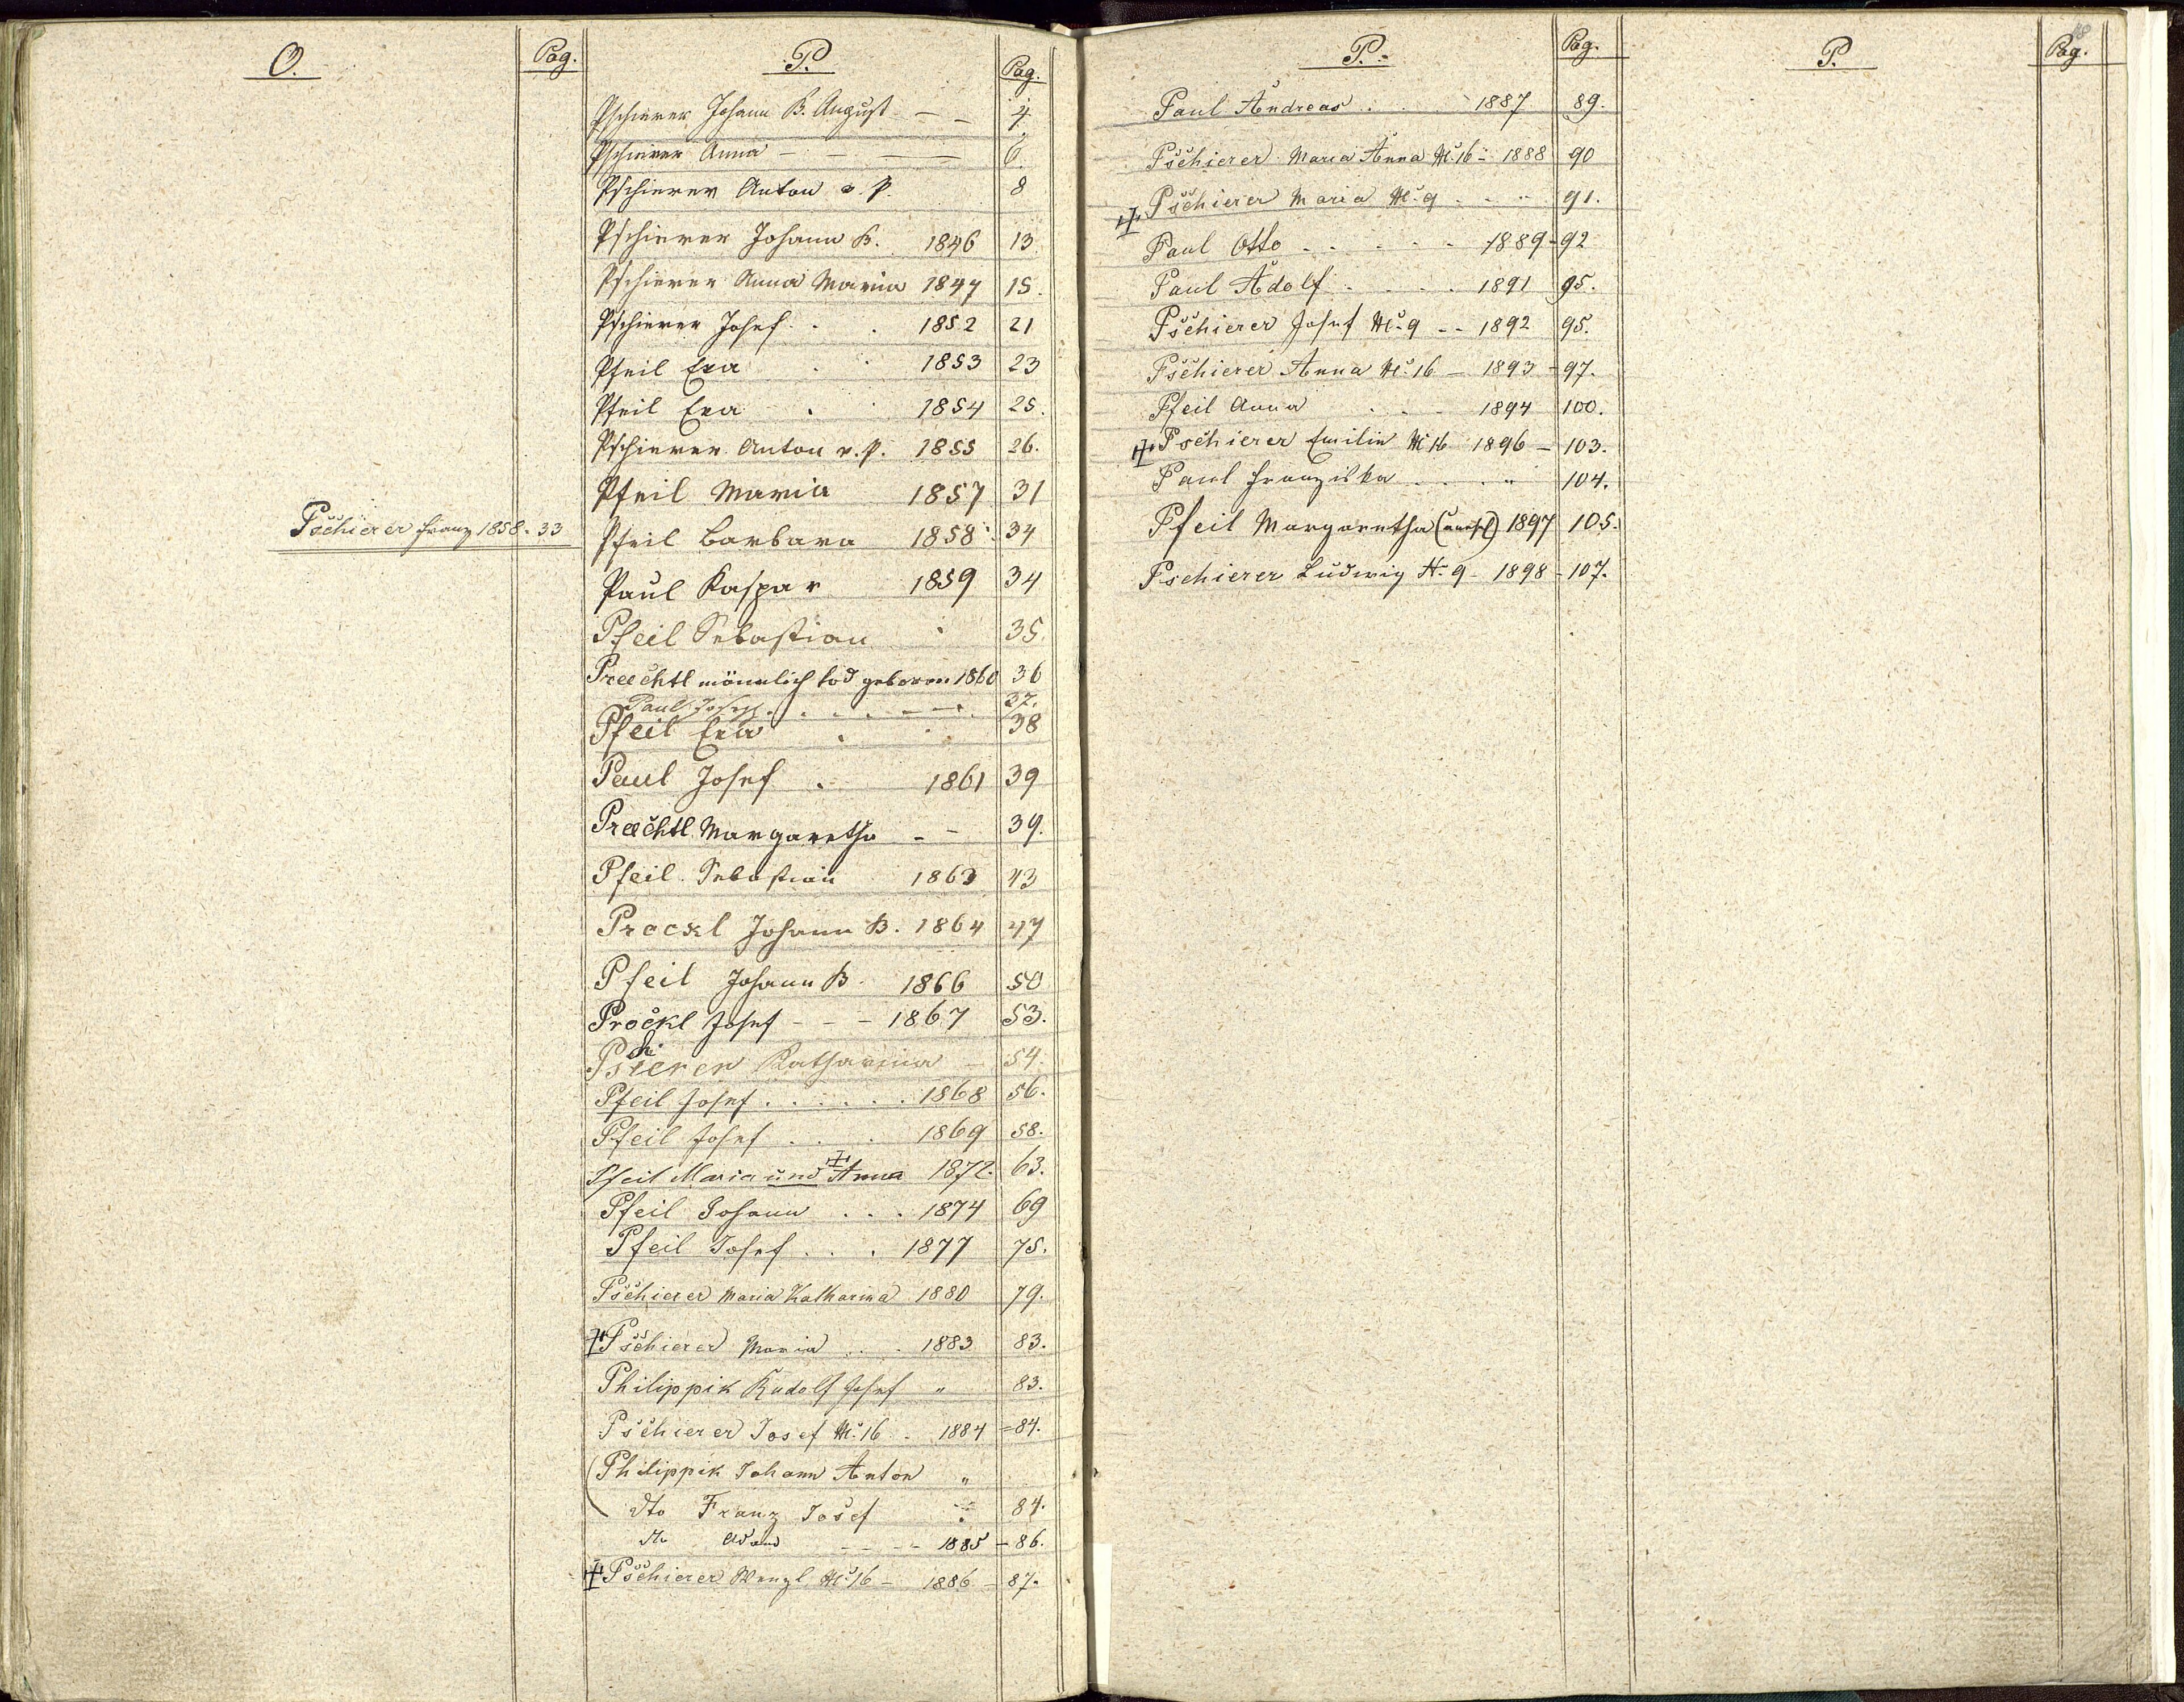 O.
Pag.
Pschierer Franz 1858 - 33
P.
Pag.
Pschierer Johann B. August - - 4.
Pschierer Anna - - - 6.
Pschierer Anton 8
Pschierer Johann B. 1846 13
Pschierer Anna Maria 1847 15.
Pschierer Josef . . 1852 21
Pfeil Eva . . 1853 23
Pfeil Eva . . 1854 25.
Pschierer Anton v. p. 1855 26.
Pfeil Maria 1857 31
Pfeil Barbara 1858 34
Paul Kaspar 1859 34
Pfeil Sebastian " 35.
Praechtl männlich tod geboren 1860 36
Paul Josef . . . - - . 37.
Pfeil Eva . . 38
Paul Josef . 1861 39
Praechtl Margaretha - - 39.
Pfeil Sebastian 1863 43
Prockl Johann B. 1864 47
Pfeil Johann B. 1866 50
Prockl Josef - - - 1867 53.
Pschierer Katharina - 54.
Pfeil Josef . . . . . . 1868 56.
Pfeil Josef . . . 1869 58.
Pfeil Maria und Anna 1872. 63.
Pfeil Johann . . . 1874 69
Pfeil Josef . . . 1877 75.
Pschierer Maria Katharina 1880 79.
Pschierer Maria . . . 1883 83.
Philippik Rudolf Josef " 83.
Pschierer Josef N. 16 . 1884 = 84.
Philippik Johann Anton "
dto Franz Josef " 84.
dto Adam - - - - 1885 - 86.
Pschierer Wenzl N. 16 - 1886 - 87.
P.
Pag.
Paul Andreas . . 1887 89.
Pschierer Maria Anna N. 16 - 1888 90
Pschierer Maria N. 9 . . . " 91.
Paul Otto - - - - - 1889 - 92
Paul Adolf . . . . 1891 95.
Pschierer Josef N. 9 - - 1892 95.
Pschierer Anna N. 16 - 1893 - 97.
Pfeil Anna . . - 1894 100.
Pschierer Emilie N. 16 1896 - 103.
Paul Franziska . . . . " 104.
Pfeil Margaretha (unehl) 1897 105.
Pschierer Ludwig N. 9 - 1898 - 107.
P.
Pag.